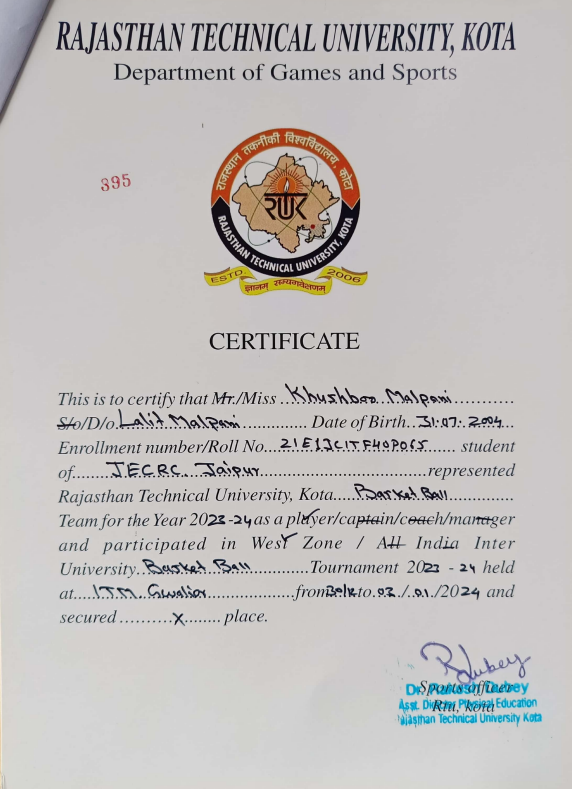 RAJASTHAN TECHNICAL UNIVERSITY, KOTA
Department of Games and Sports
395
राजस्थान तकनीकी विश्वविद्यालय, कोटा
RTU
RAJASTHAN TECHNICAL UNIVERSITY, KOTA
ESTD 2006
ज्ञानम् सम्यगवेक्षणम्
CERTIFICATE
This is to certify that Mr./Miss ..Khushboo Malpani............
S/o/D/o.Lalit Malpani.............. Date of Birth..31.07..2004...
Enrollment number/Roll No...21E1JCITF40P065...... student
of......JECRC..Jaipur.................................represented
Rajasthan Technical University, Kota....Basket Ball.............
Team for the Year 2023-24 as a player/captain/coach/manager
and participated in West Zone / All India Inter
University..Basket Ball............Tournament 2023 - 24 held
at....ITM..Gwalior......................from to.03./.01./2024 and
secured ..........x........ place.
Sports officer
Rtu, kota
Dubey
Asst. Director Physical Education
Rajasthan Technical University Kota